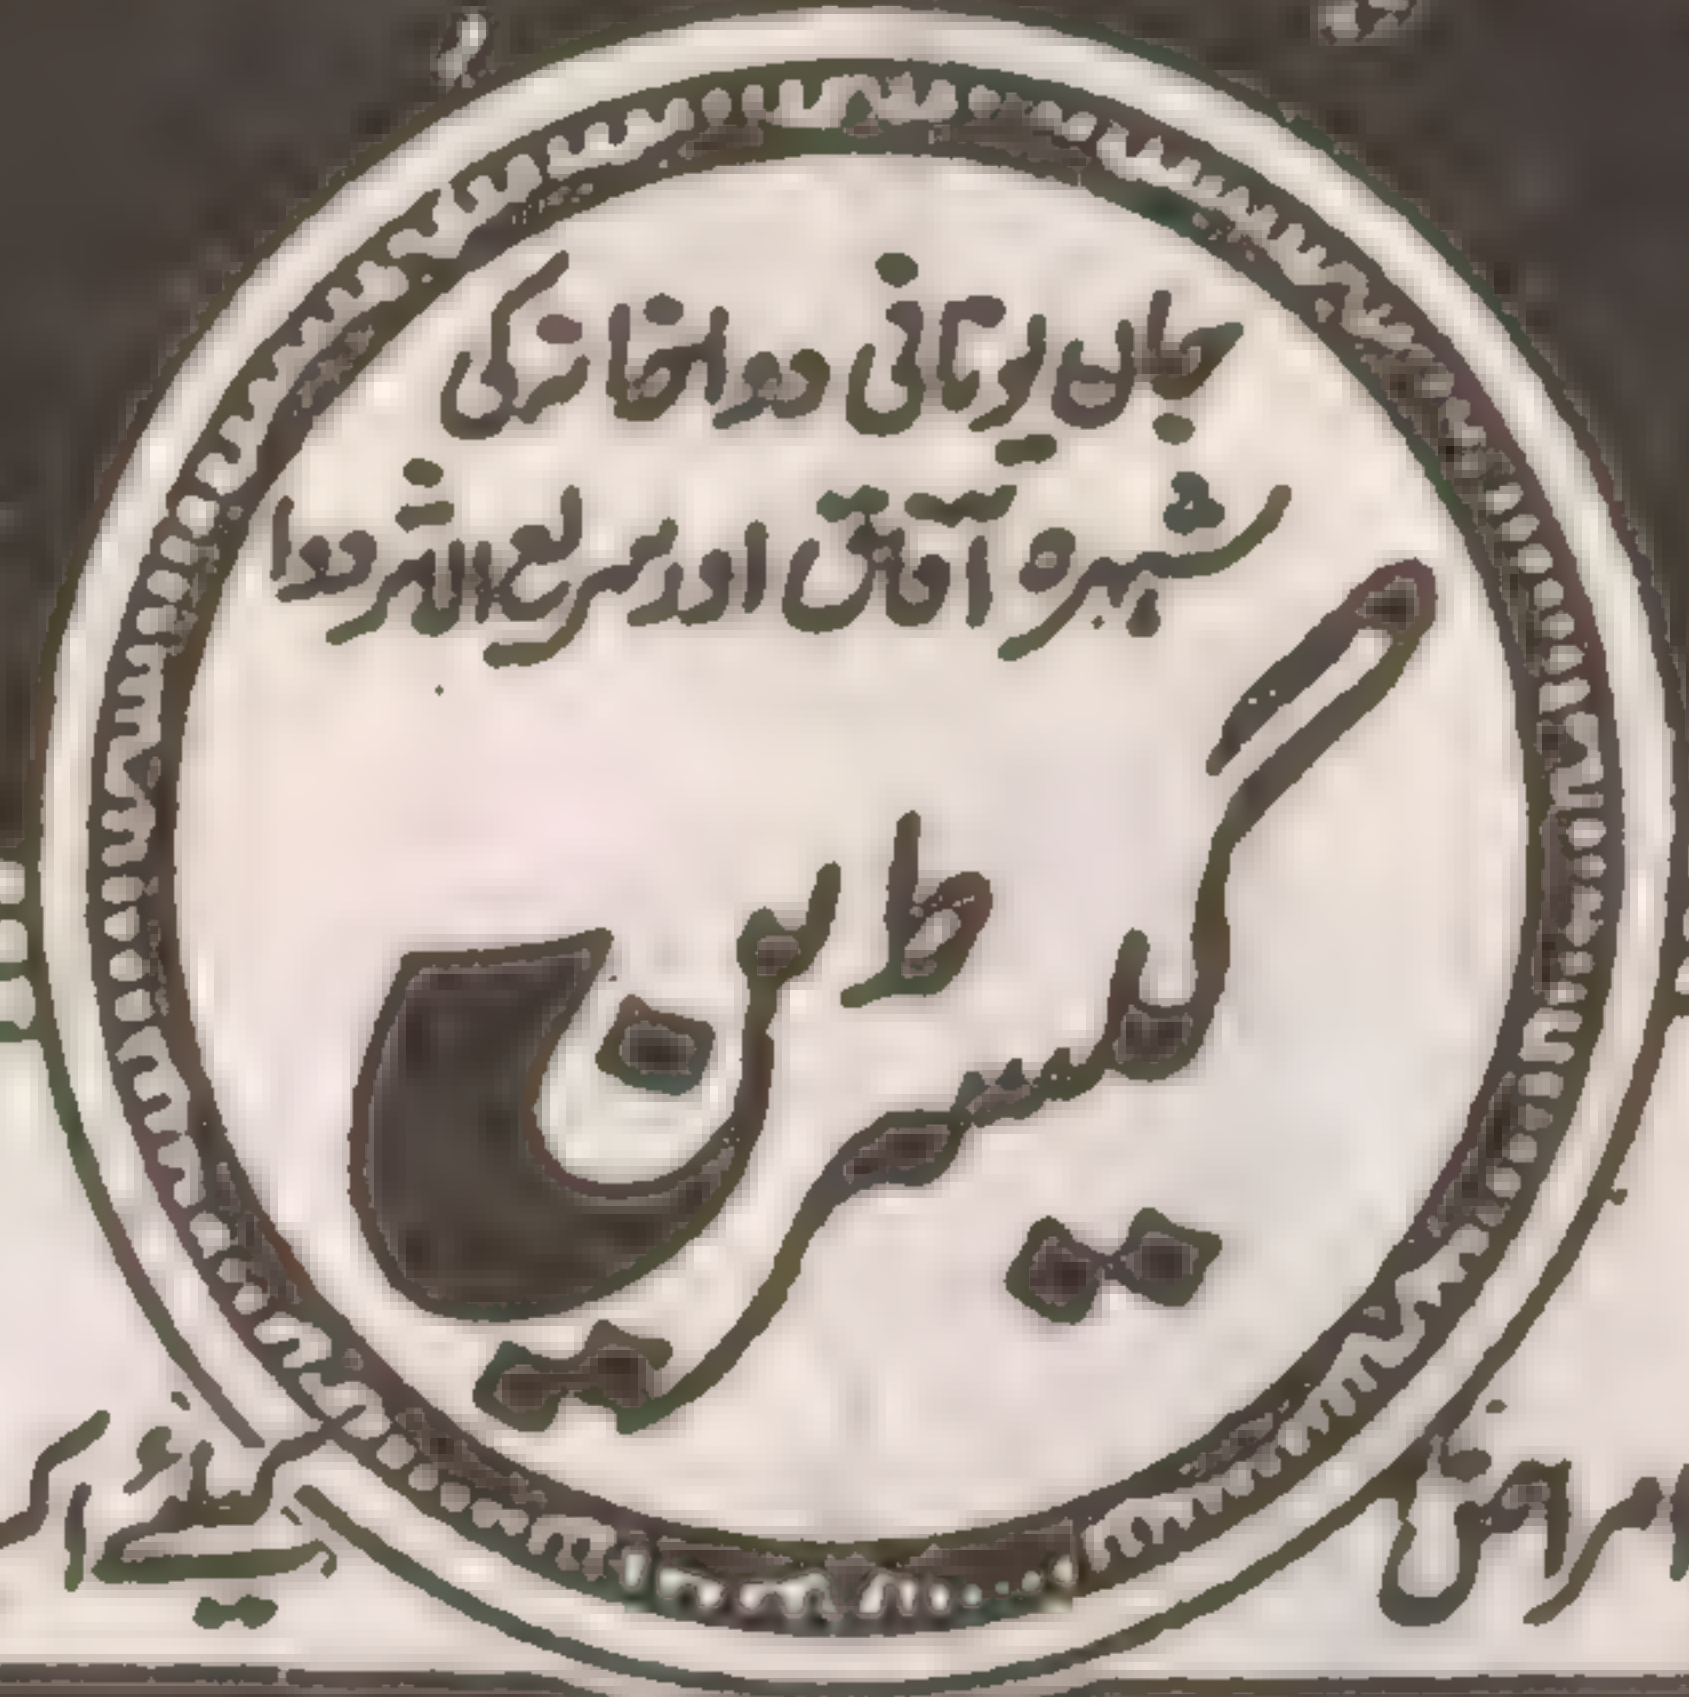 جان یونانی دواخانہ کی
شہرہ آفاق اور سریع الاثر دوا
گیسٹرین
امراض
کیلئے